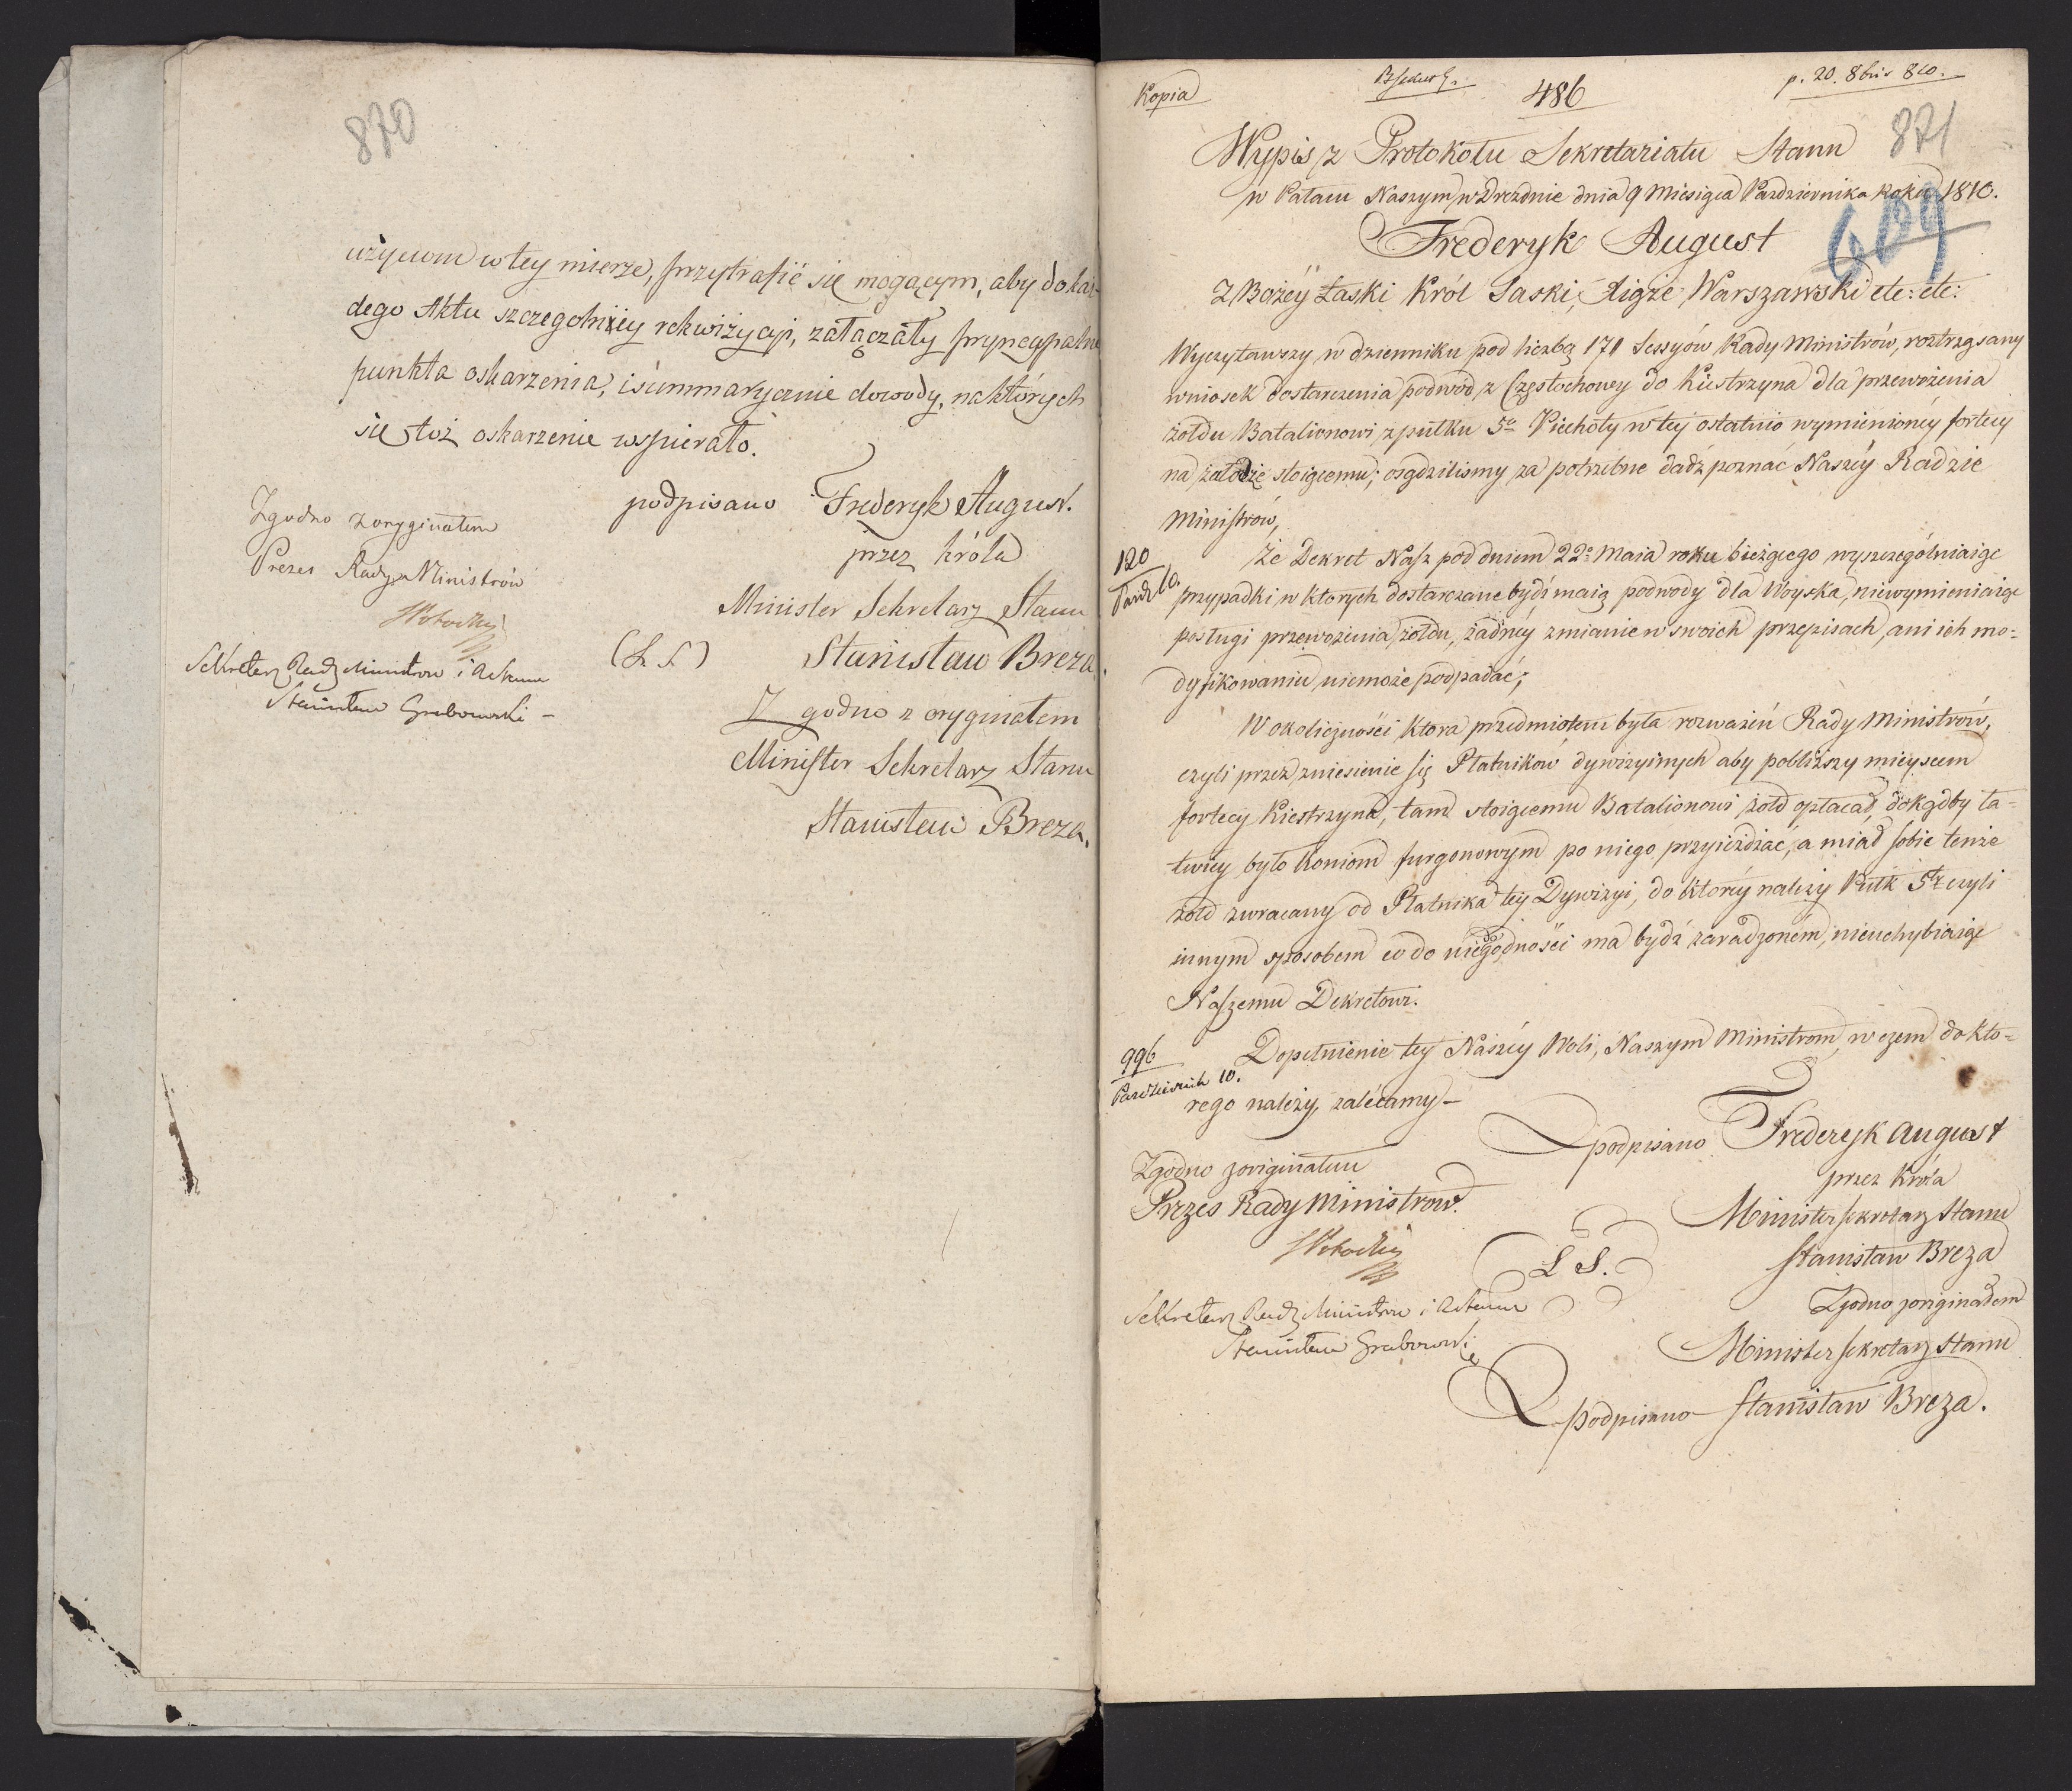 870
użyciom w tey mierze, przytrafić się mogącym, aby do każ-
dego Aktu szczególniey rekwizycyi, załączały pryncypalne
punkta oskarzenia, i summarycznie dowody, na których
się toż oskarzenie wspierało.
podpisano Frederyk August.
przez króla
Minister Sekretarz Stanu
(L S) Stanisław Breza.
Zgodno z oryginałem
Minister Sekretarz Stanu
Stanisław Breza.
Zgodno z oryginałem
Prezes Rady Ministrów
Sekretarz Rady Ministrow i
Stanisław Grabowski –
Kopia
486
p. 20. 8bris 810.
871
Wypis z Protokołu Sekretariatu Stanu
w Pałacu Naszym w Dreznie dnia 9 Miesiąca Pazdziernika Roku 1810.
609
Frederyk August
Z Bożéy Łaski Król Saski, Xiąże Warszawski etc: etc:
Wyczytawszy w dzienniku pod liczbą 171 Sessyów Rady Ministrów, roztrząsany
wniosek dostarczenia podwód z Częstochowy do Kistrzyna dla przewożenia
żołdu Batalionowi z pułku 5o Piechoty w tey ostatnio wymienionéy fortecy
na załodze stoiącemu; osądziliśmy za potrzebne dadź poznać Naszéy Radzie
Ministrów,
120
Pazdz 10.
że Dekret Nasz pod dniem 22o Maia roku bieżącego wyszczególniaiąc
przypadki w ktorych dostarczane bydź maią podwody dla Woyska, niewymieniaiąc
posługi przewożenia żołdu, żadnéy zmianie w swoich przepisach, ani ich mo=
dyfikowaniu niemoże podpadać;
W okoliczności ktora przedmiotem była rozważeń Rady Ministrów,
czyli przez zniesienie się Płatników dywizyinych aby pobliższy mieyscem
fortecy Kistrzyna, tam stoiącemu Batalionowi żołd opłacał, dokądby ła=
twiéy było koniom furgonowym po niego przyieżdżać, a miał sobie tenże
żołd zwracany od Płatnika téy Dywizyi, do któréy należy Pułk 5ty czyli
innym sposobem co do niedogodności ma bydź zaradzoném, nieuchybiaiąc
Naszemu Dekretowi.
996
Pazdziernik 10.
Dopełnienie téy Naszéy Woli, Naszym Ministrom, w czem do kto=
rego należy, zalécamy –
podpisano Frederyk August
przez Króla
Minister Sekretarz Stanu
Stanisław Breza
L S.
Zgodno z originałem
Minister Sekretarz Stanu
podpisano Stanisław Breza.
Zgodno z originałem
Prezes Rady Ministrow.
Sekretarz Rady Ministrow i
Stanisław Grabowski